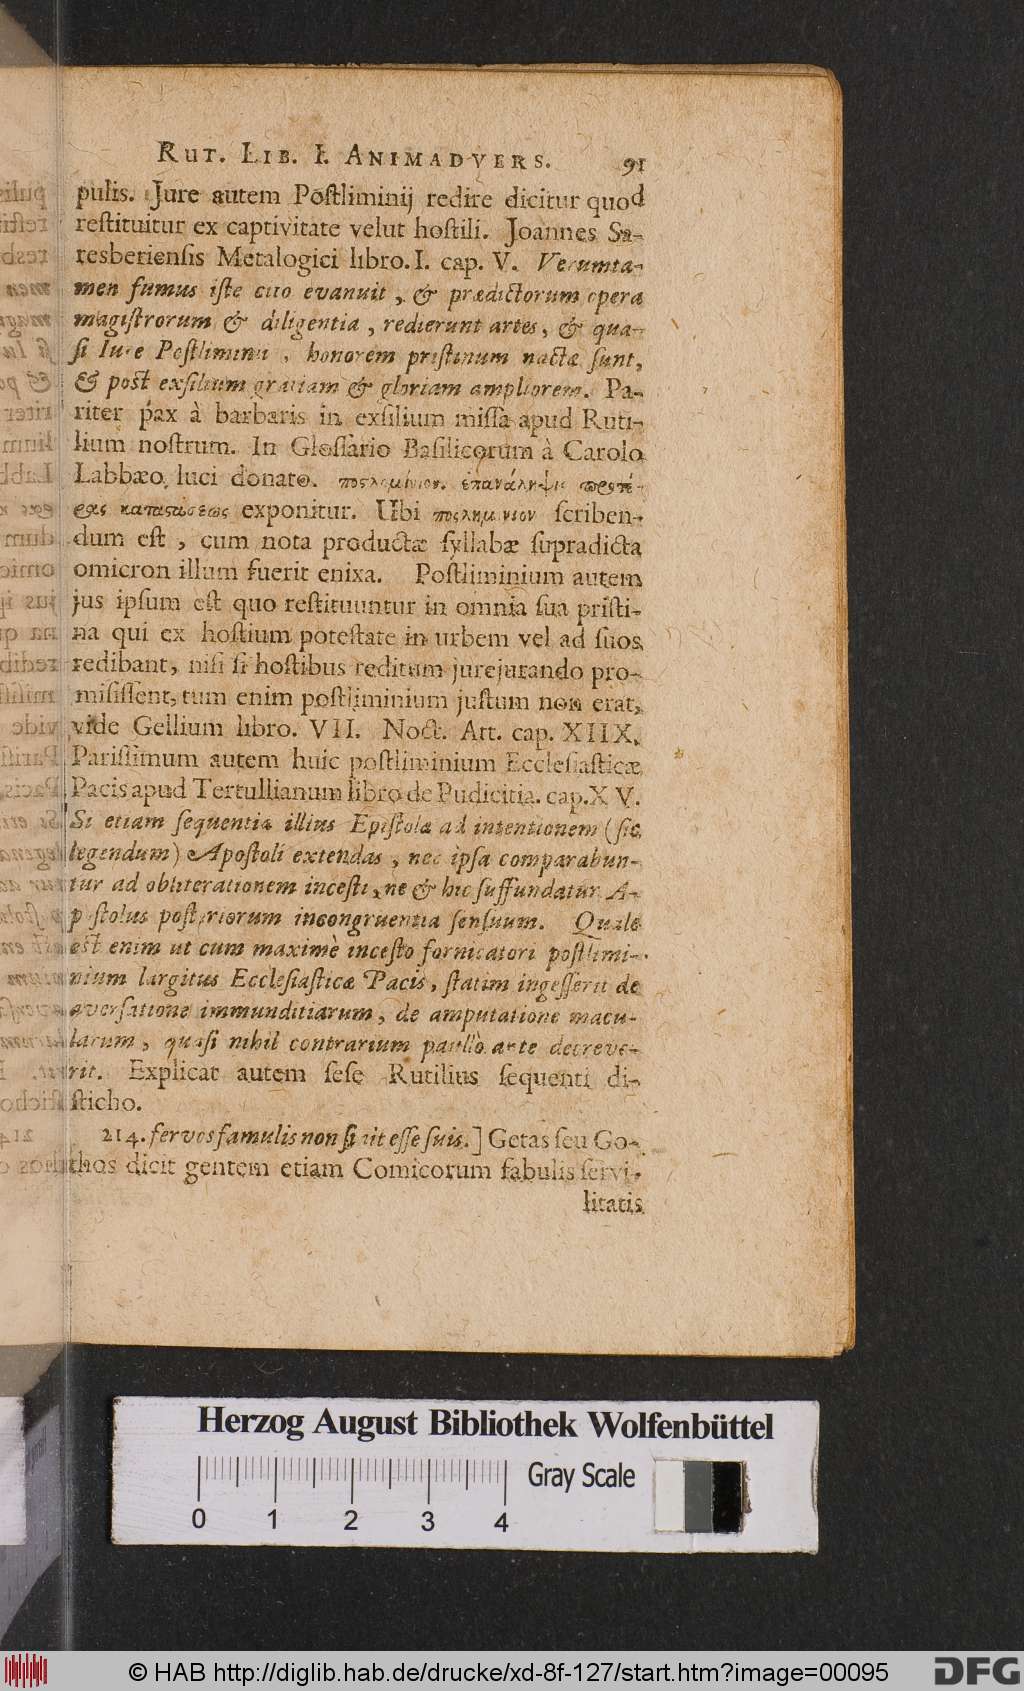 RUT. LIB. I. ANIMADVERS. 91
pulis. Jure autem Postliminij redire dicitur quod
restituitur ex captivitate velut hostili. Joannes Sa-
resberiensis Metalogici libro. I. cap. V. Verumta-
men fumus iste cito evanuit, & prædictorum opera
magistrorum & diligentia, redierunt artes, & qua-
si Iure Postliminii, honorem pristinum nactæ sunt,
& post exsilium gratiam & gloriam ampliorem. Pa-
riter pax à barbaris in exsilium missa apud Ruti-
lium nostrum. In Glossario Basilicorum à Carolo
Labbæo luci donato. ἐπανάληψις
καταστάσεως exponitur. Ubi scriben-
dum est, cum nota productæ syllabæ supradicta
omicron illum fuerit enixa. Postliminium autem
jus ipsum est quo restituuntur in omnia sua pristi-
na qui ex hostium potestate in urbem vel ad suos
redibant, nisi si hostibus reditum jurejurando pro-
misissent, tum enim postliminium justum non erat,
vide Gellium libro. VII. Noct. Att. cap. XIIX.
Parissimum autem huic postliminium Ecclesiasticæ
Pacis apud Tertullianum libro de Pudicitia. cap. XV.
Si etiam sequentia illius Epistolæ ad intentionem (sic
legendum) Apostoli extendas, nec ipsa comparabun-
tur ad obliterationem incesti, ne & hic suffundatur A-
postolus posteriorum incongruentia sensuum. Quale
est enim ut cum maximè incesto fornicatori postlimi-
nium largitus Ecclesiasticæ Pacis, statim ingesserit de
aversatione immunditiarum, de amputatione macu-
larum, quasi nihil contrarium paullò ante decreve-
rit. Explicat autem sese Rutilius sequenti di-
sticho.
214. servos famulis non sinit esse suis.] Getas seu Go-
thos dicit gentem etiam Comicorum fabulis servi-
litatis
Herzog August Bibliothek Wolfenbüttel
Gray Scale
0 1 2 3 4
© HAB http://diglib.hab.de/drucke/xd-8f-127/start.htm?image=00095
DFG